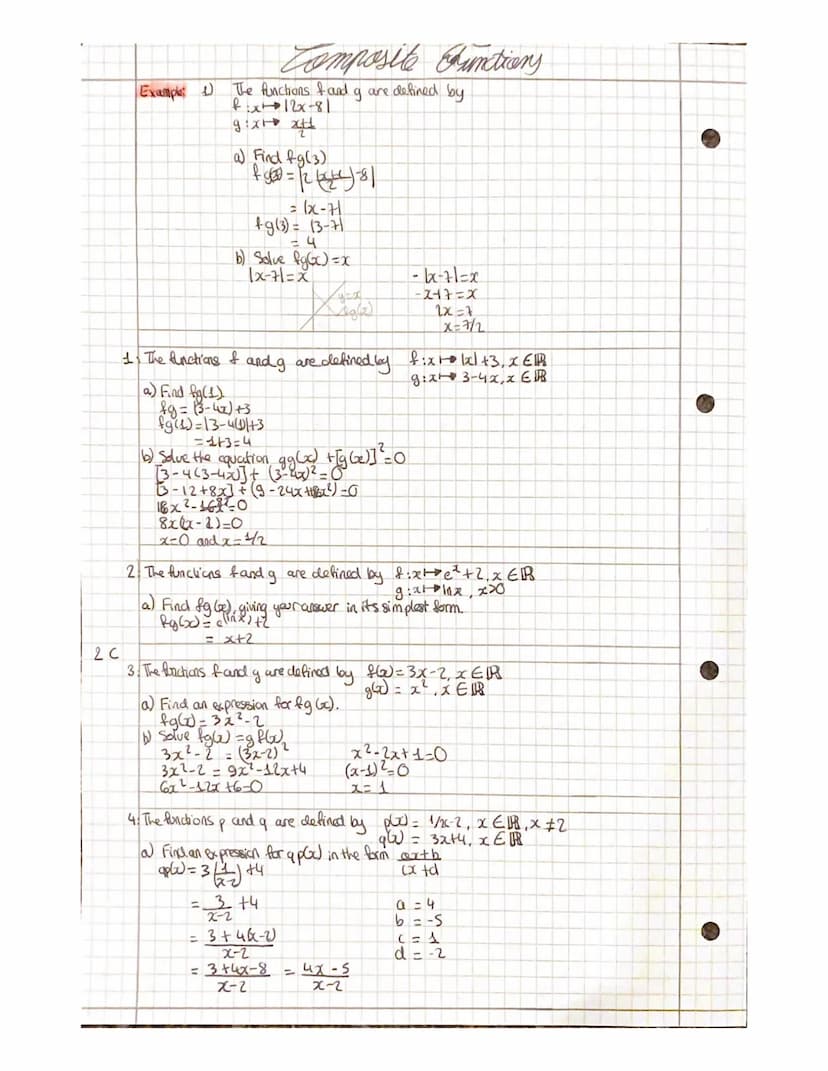 Composite Functions
Example: 1) The functions f and g are defined by
f : x ↦ |2x-8|
g : x ↦ x+1/2
a) Find fg(3)
fg(x) = |2(x+1/2)-8|
= |x-7|
fg(3) = |3-7|
= 4
b) Solve fg(x) = x
|x-7| = x
y=x
fg(x)
- |x-7| = x
-x+7 = x
2x = 7
x = 7/2
1. The functions f and g are defined by f : x ↦ |x|+3, x ∈ ℝ
g : x ↦ 3-4x, x ∈ ℝ
a) Find fg(1)
fg = |3-4x|+3
fg(1) = |3-4(1)|+3
= 1+3 = 4
b) Solve the equation gg(x) + [g(x)]² = 0
[3-4(3-4x)] + (3-4x)² = 0
[3-12+8x] + (9-24x+16x²) = 0
16x²-16x²=0
8x(x-1)=0
x=0 and x=1/2
2. The functions f and g are defined by f : x ↦ eˣ+2, x ∈ ℝ
g : x ↦ ln x, x>0
a) Find fg(x), giving your answer in its simplest form.
fg(x) = e^(ln x)+2
= x+2
2 C
3. The functions f and g are defined by f(x) = 3x-2, x ∈ ℝ
g(x) = x², x ∈ ℝ
a) Find an expression for fg(x).
fg(x) = 3x²-2
b) Solve fg(x) = gf(x)
3x²-2 = (3x-2)²
3x²-2 = 9x²-12x+4
6x²-12x+6=0
x²-2x+1=0
(x-1)²=0
x = 1
4. The functions p and q are defined by p(x) = 1/x-2, x ∈ ℝ, x ≠ 2
q(x) = 3x+4, x ∈ ℝ
a) Find an expression for qp(x) in the form ax+b/cx+d
qp(x) = 3(1/x-2)+4
= 3/x-2 +4
= 3+4(x-2)/x-2
= 3+4x-8/x-2 = 4x-5/x-2
a = 4
b = -5
c = 1
d = -2